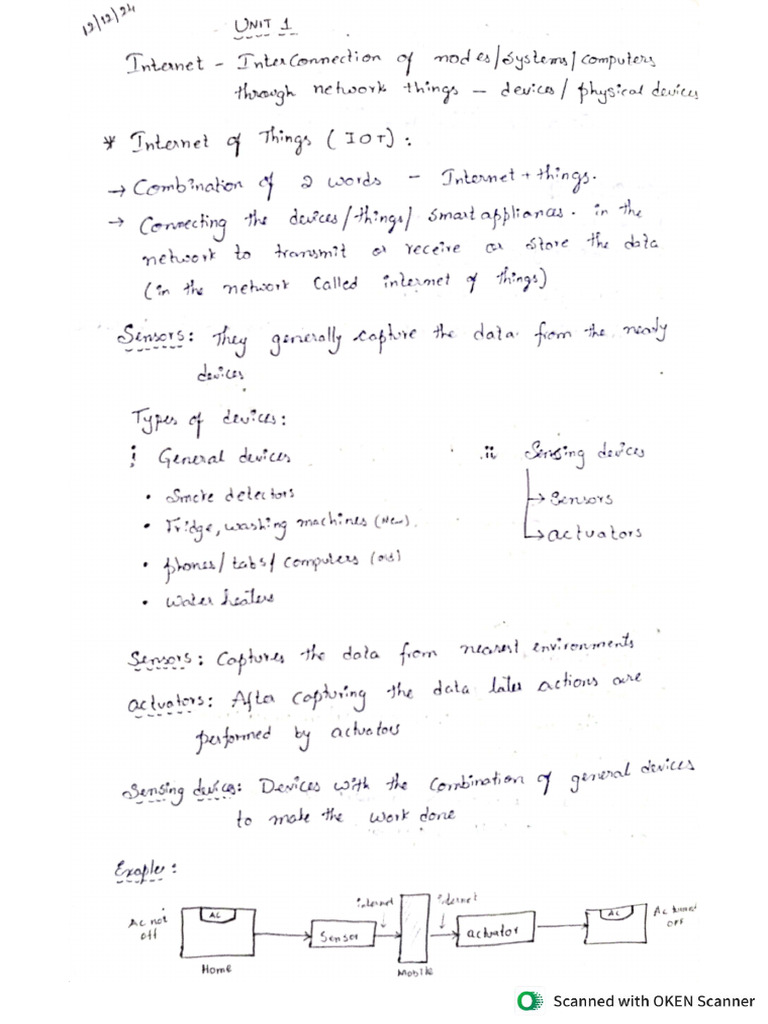 12/12/24
UNIT 1
Internet - Interconnection of nodes/systems/computers
through network things - devices/physical devices
* Internet of Things (IOT):
→ Combination of 2 words - Internet + things.
→ Connecting the devices/things/smart appliances. in the
network to transmit or receive or store the data
(in the network called internet of things)
Sensors: They generally capture the data from the neaby
devices
Types of devices:
i General devices
• Smoke detectors
• Fridge, washing machines (New)
• phones/tabs/computers (old)
• water heaters
ii Sensing devices
→ Sensors
→ actuators
Sensors: Captures the data from nearest environments
actuators: After capturing the data later actions are
performed by actuators
Sensing devices: Devices with the combination of general devices
to make the work done
Exaple:
Ac not
off
AC
Home
Sensor
internet
Mobile
internet
actuator
AC
Ac turned
off
Scanned with OKEN Scanner